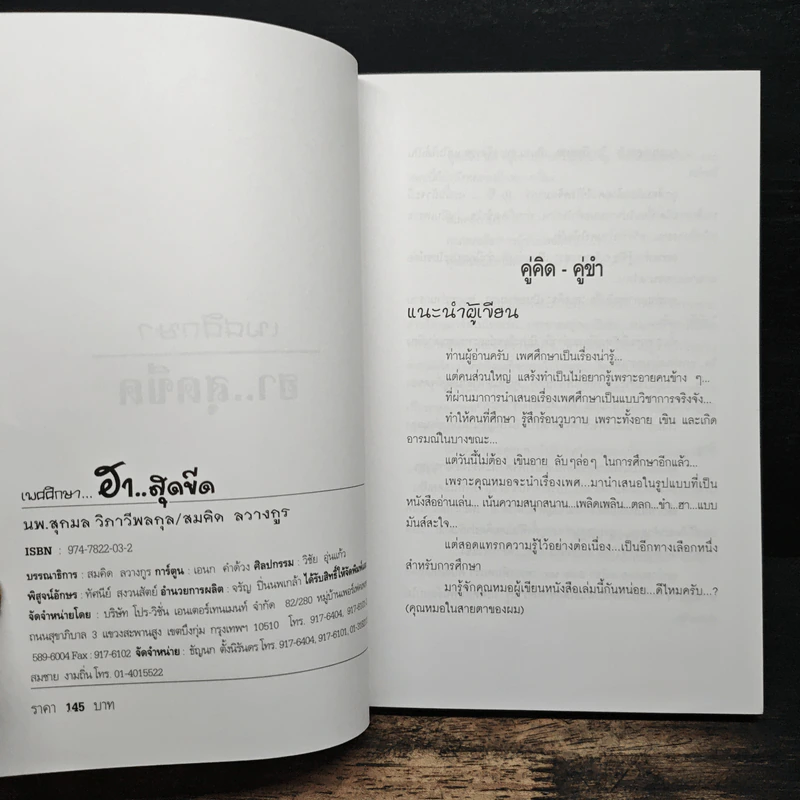 เพศศึกษา... ฮา..สุดขีด
นพ.สุกมล วิภาวีพลกุล/สมคิด ลวางกูร
ISBN : 974-7822-03-2
บรรณาธิการ : สมคิด ลวางกูร การ์ตูน : เอนก คำด้วง ศิลปกรรม : วิชัย อุ่นแก้ว
พิสูจน์อักษร : ทัศนีย์ สงวนสัตย์ อำนวยการผลิต : จรัญ ปิ่นนพเกล้า ได้รับสิทธิ์ให้จัดพิมพ์
จัดจำหน่ายโดย : บริษัท โปร-วิชั่น เอนเตอร์เทนเมนท์ จำกัด 82/280 หมู่บ้าน
ถนนสุขาภิบาล 3 แขวงสะพานสูง เขตบึงกุ่ม กรุงเทพฯ 10510 โทร. 917-6404, 917-6101,
589-6004 Fax : 917-6102 จัดจำหน่าย : ชัญนก ตั้งนิรันดร โทร. 917-6404,
สมชาย งามถิ่น โทร. 01-4015522
ราคา 145 บาท
คู่คิด - คู่ขำ
แนะนำผู้เขียน
ท่านผู้อ่านครับ เพศศึกษาเป็นเรื่องน่ารู้...
แต่คนส่วนใหญ่ แสร้งทำเป็นไม่อยากรู้เพราะอายคนข้าง ๆ...
ที่ผ่านมาการนำเสนอเรื่องเพศศึกษาเป็นแบบวิชาการจริงจัง...
ทำให้คนที่ศึกษา รู้สึกร้อนวูบวาบ เพราะทั้งอาย เขิน และเกิด
อารมณ์ในบางขณะ...
แต่วันนี้ไม่ต้อง เขินอาย ลับๆล่อๆ ในการศึกษาอีกแล้ว...
เพราะคุณหมอจะนำเรื่องเพศ...มานำเสนอในรูปแบบที่เป็น
หนังสืออ่านเล่น...เน้นความสนุกสนาน...เพลิดเพลิน...ตลก...ขำ...ฮา...แบบ
มันส์สะใจ...
แต่สอดแทรกความรู้ไว้อย่างต่อเนื่อง...เป็นอีกทางเลือกหนึ่ง
สำหรับการศึกษา
มารู้จักคุณหมอผู้เขียนหนังสือเล่มนี้กันหน่อย...ดีไหมครับ...?
(คุณหมอในสายตาของผม)